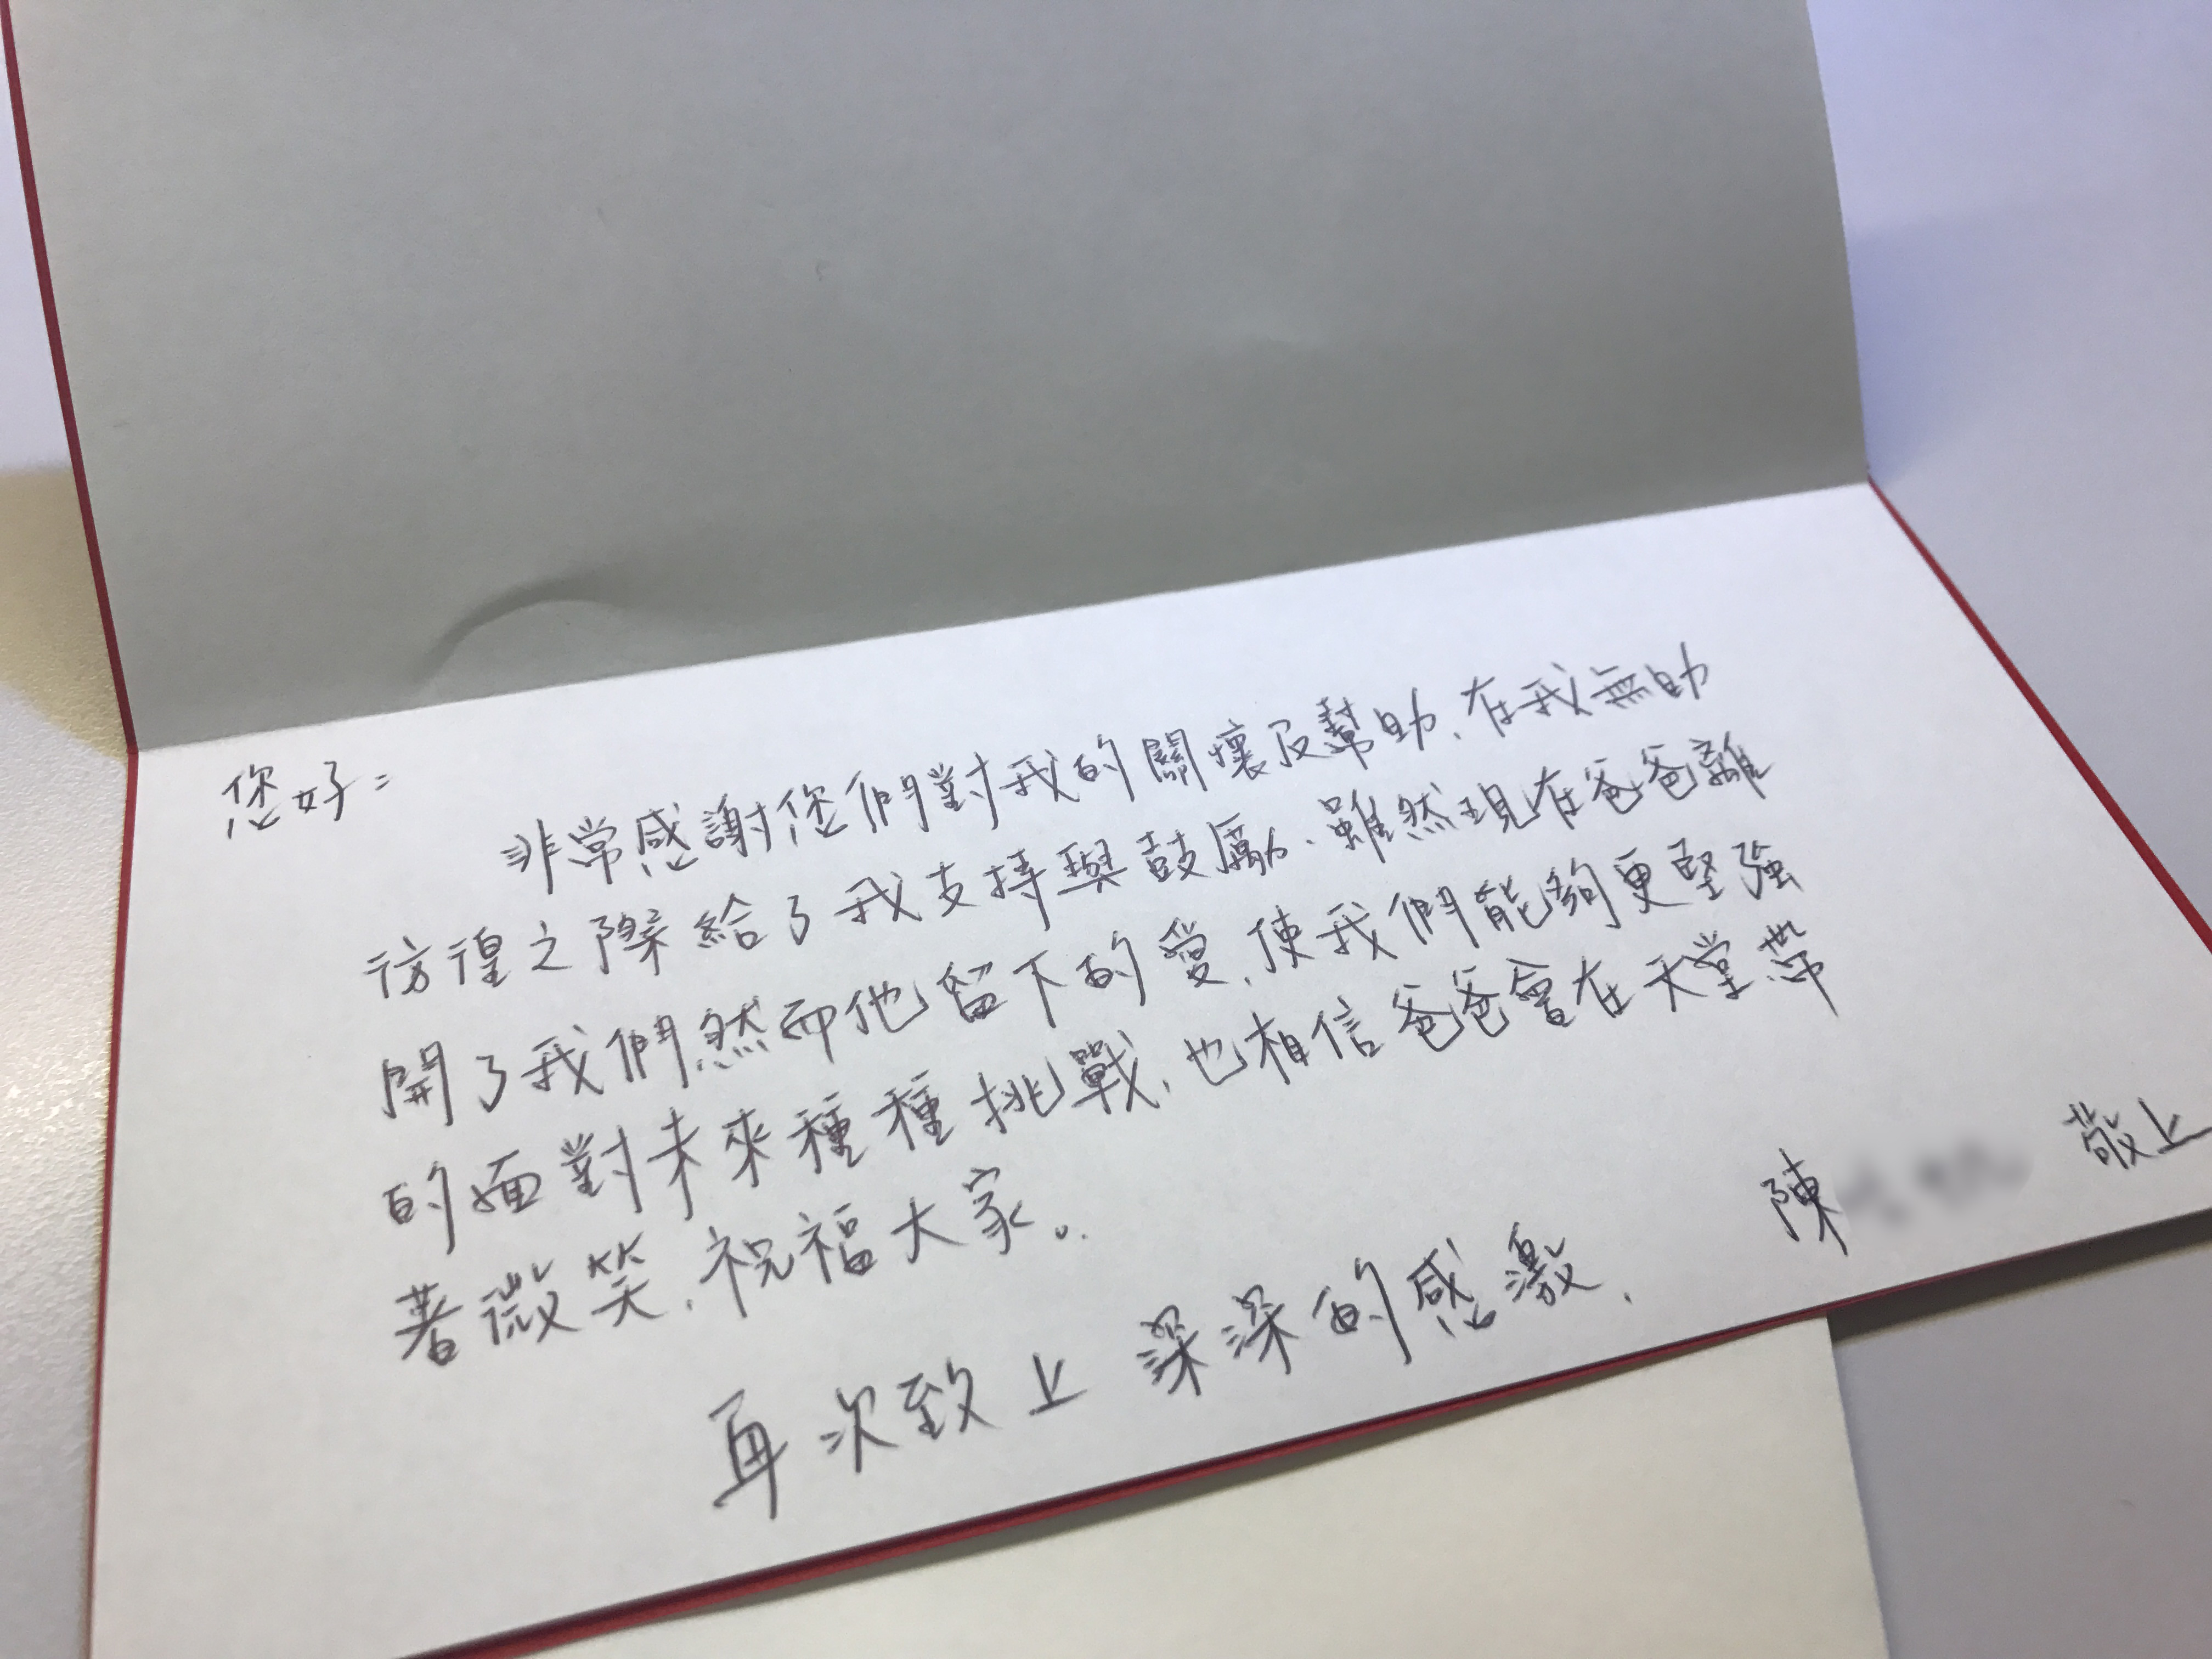 您好：
非常感謝您們對我的關懷及幫助，在我無助
彷徨之際給了我支持與鼓勵，雖然現在爸爸離
開了我們然而他留下的愛，使我們能夠更堅強
的面對未來種種挑戰，也相信爸爸會在天堂帶
著微笑，祝福大家。
再次致上深深的感激，
陳 敬上